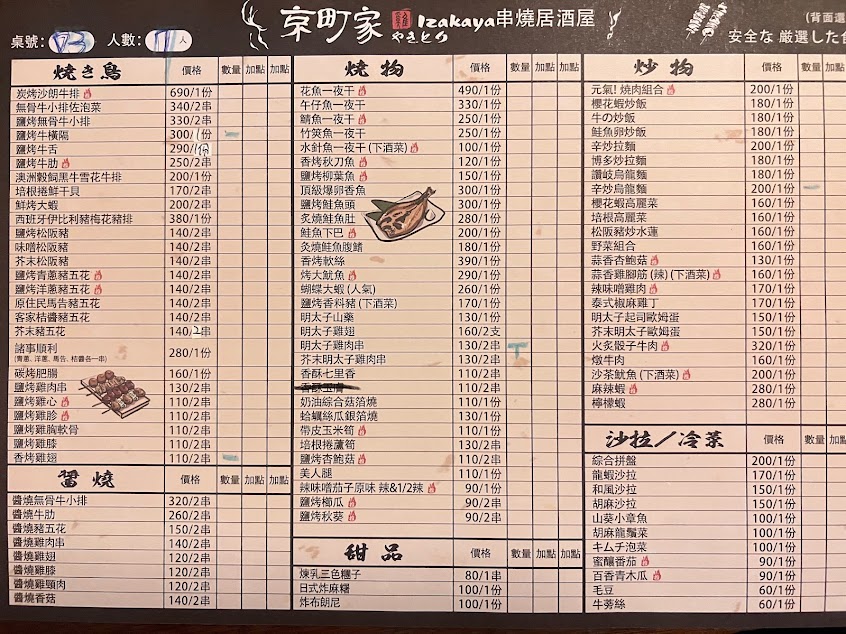 京町家 Izakaya串燒居酒屋
やきとり
(背面還
桌號: 人數: 人
安全な 厳選した
焼き鳥 價格 數量 加點 加點
炭烤沙朗牛排 690/1份
無骨牛小排佐泡菜 340/2串
鹽烤無骨牛小排 330/2串
鹽烤牛橫隔 300/1份
鹽烤牛舌 290/1份
鹽烤牛肋 250/2串
澳洲穀飼黑牛雪花牛排 200/1份
培根捲鮮干貝 170/2串
鮮烤大蝦 200/2串
西班牙伊比利豬梅花豬排 380/1份
鹽烤松阪豬 140/2串
味噌松阪豬 140/2串
芥末松阪豬 140/2串
鹽烤青蔥豬五花 140/2串
鹽烤洋蔥豬五花 140/2串
原住民馬告豬五花 140/2串
客家桔醬豬五花 140/2串
芥末豬五花 140/2串
諸事順利 280/1份
(青蔥、洋蔥、馬告、桔醬各一串)
碳烤肥腸 160/1份
鹽烤雞肉串 130/2串
鹽烤雞心 110/2串
鹽烤雞胗 110/2串
鹽烤雞胸軟骨 110/2串
鹽烤雞膝 110/2串
香烤雞翅 110/2串
醬燒 價格 數量 加點 加點
醬燒無骨牛小排 320/2串
醬燒牛肋 260/2串
醬燒豬五花 150/2串
醬燒雞肉串 140/2串
醬燒雞翅 120/2串
醬燒雞膝 120/2串
醬燒雞頸肉 120/2串
醬燒香菇 140/2串
燒物 價格 數量 加點 加點
花魚一夜干 490/1份
午仔魚一夜干 330/1份
鯖魚一夜干 250/1份
竹筴魚一夜干 250/1份
水針魚一夜干 (下酒菜) 100/1份
香烤秋刀魚 120/1份
鹽烤柳葉魚 150/1份
頂級爆卵香魚 300/1份
鹽烤鮭魚頭 300/1份
炙燒鮭魚肚 280/1份
鮭魚下巴 200/1份
炙燒鮭魚腹鰭 180/1份
香烤軟絲 390/1份
烤大魷魚 290/1份
蝴蝶大蝦 (人氣) 260/1份
鹽烤香料豬 (下酒菜) 170/1份
明太子山藥 130/1份
明太子雞翅 160/2支
明太子雞肉串 130/2串
芥末明太子雞肉串 130/2串
香酥七里香 110/2串
110/2串
奶油綜合菇箔燒 110/1份
蛤蠣絲瓜銀箔燒 130/1份
帶皮玉米筍 110/1份
培根捲蘆筍 130/2串
鹽烤杏鮑菇 110/2串
美人腿 110/1份
辣味噌茄子原味 辣&1/2辣 90/1份
鹽烤櫛瓜 90/2串
鹽烤秋葵 90/2串
甜品 價格 數量 加點 加點
煉乳三色糰子 80/1串
日式炸麻糬 100/1份
炸布朗尼 100/1份
炒物 價格 數量 加點
元氣! 燒肉組合 200/1份
櫻花蝦炒飯 180/1份
牛の炒飯 180/1份
鮭魚卵炒飯 180/1份
辛炒拉麵 200/1份
博多炒拉麵 180/1份
讚岐烏龍麵 180/1份
辛炒烏龍麵 200/1份
櫻花蝦高麗菜 160/1份
培根高麗菜 160/1份
松阪豬炒水蓮 160/1份
野菜組合 160/1份
蒜香杏鮑菇 130/1份
蒜香雞腳筋 (辣) (下酒菜) 160/1份
辣味噌雞肉 170/1份
泰式椒麻雞丁 170/1份
明太子起司歐姆蛋 150/1份
芥末明太子歐姆蛋 150/1份
火炙骰子牛肉 320/1份
燉牛肉 160/1份
沙茶魷魚 (下酒菜) 200/1份
麻辣蝦 280/1份
檸檬蝦 280/1份
沙拉/冷菜 價格 數量 加點
綜合拼盤 200/1份
龍蝦沙拉 170/1份
和風沙拉 150/1份
胡麻沙拉 150/1份
山葵小章魚 100/1份
胡麻龍鬚菜 100/1份
キムチ泡菜 100/1份
蜜釀番茄 90/1份
百香青木瓜 90/1份
毛豆 60/1份
牛蒡絲 60/1份